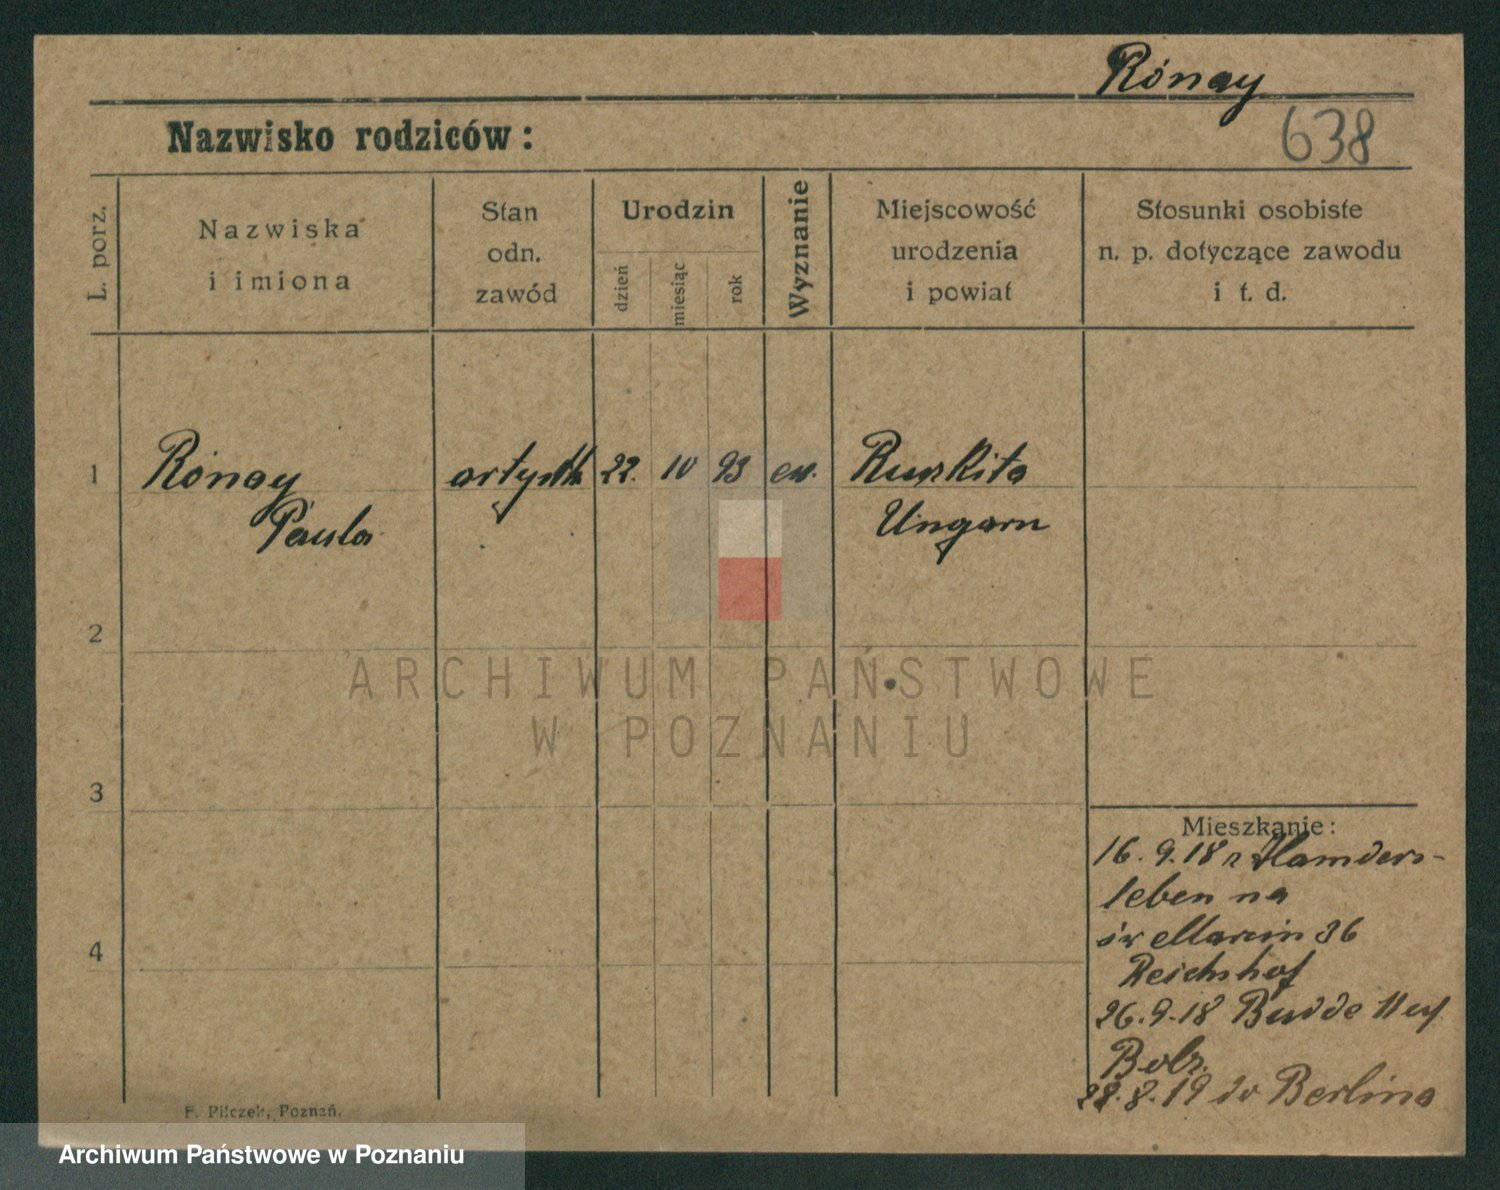 Rónay
638
Nazwisko rodziców:
L. porz.
Nazwiska
i imiona
Stan
odn.
zawód
Urodzin
dzień
miesiąc
rok
Wyznanie
Miejscowość
urodzenia
i powiat
Stosunki osobiste
n. p. dotyczące zawodu
i t. d.
1
Rónay
Paula
22. 10 93 ew.
Ungarn
2
ARCHIWUM PAŃSTWOWE
W POZNANIU
3
Mieszkanie:
16.9.18 z
leben na
św Marcin 36
Reichshof
4
26.9.18 Budde
28.8.19 do Berlina
F. Pilczek, Poznań.
Archiwum Państwowe w Poznaniu